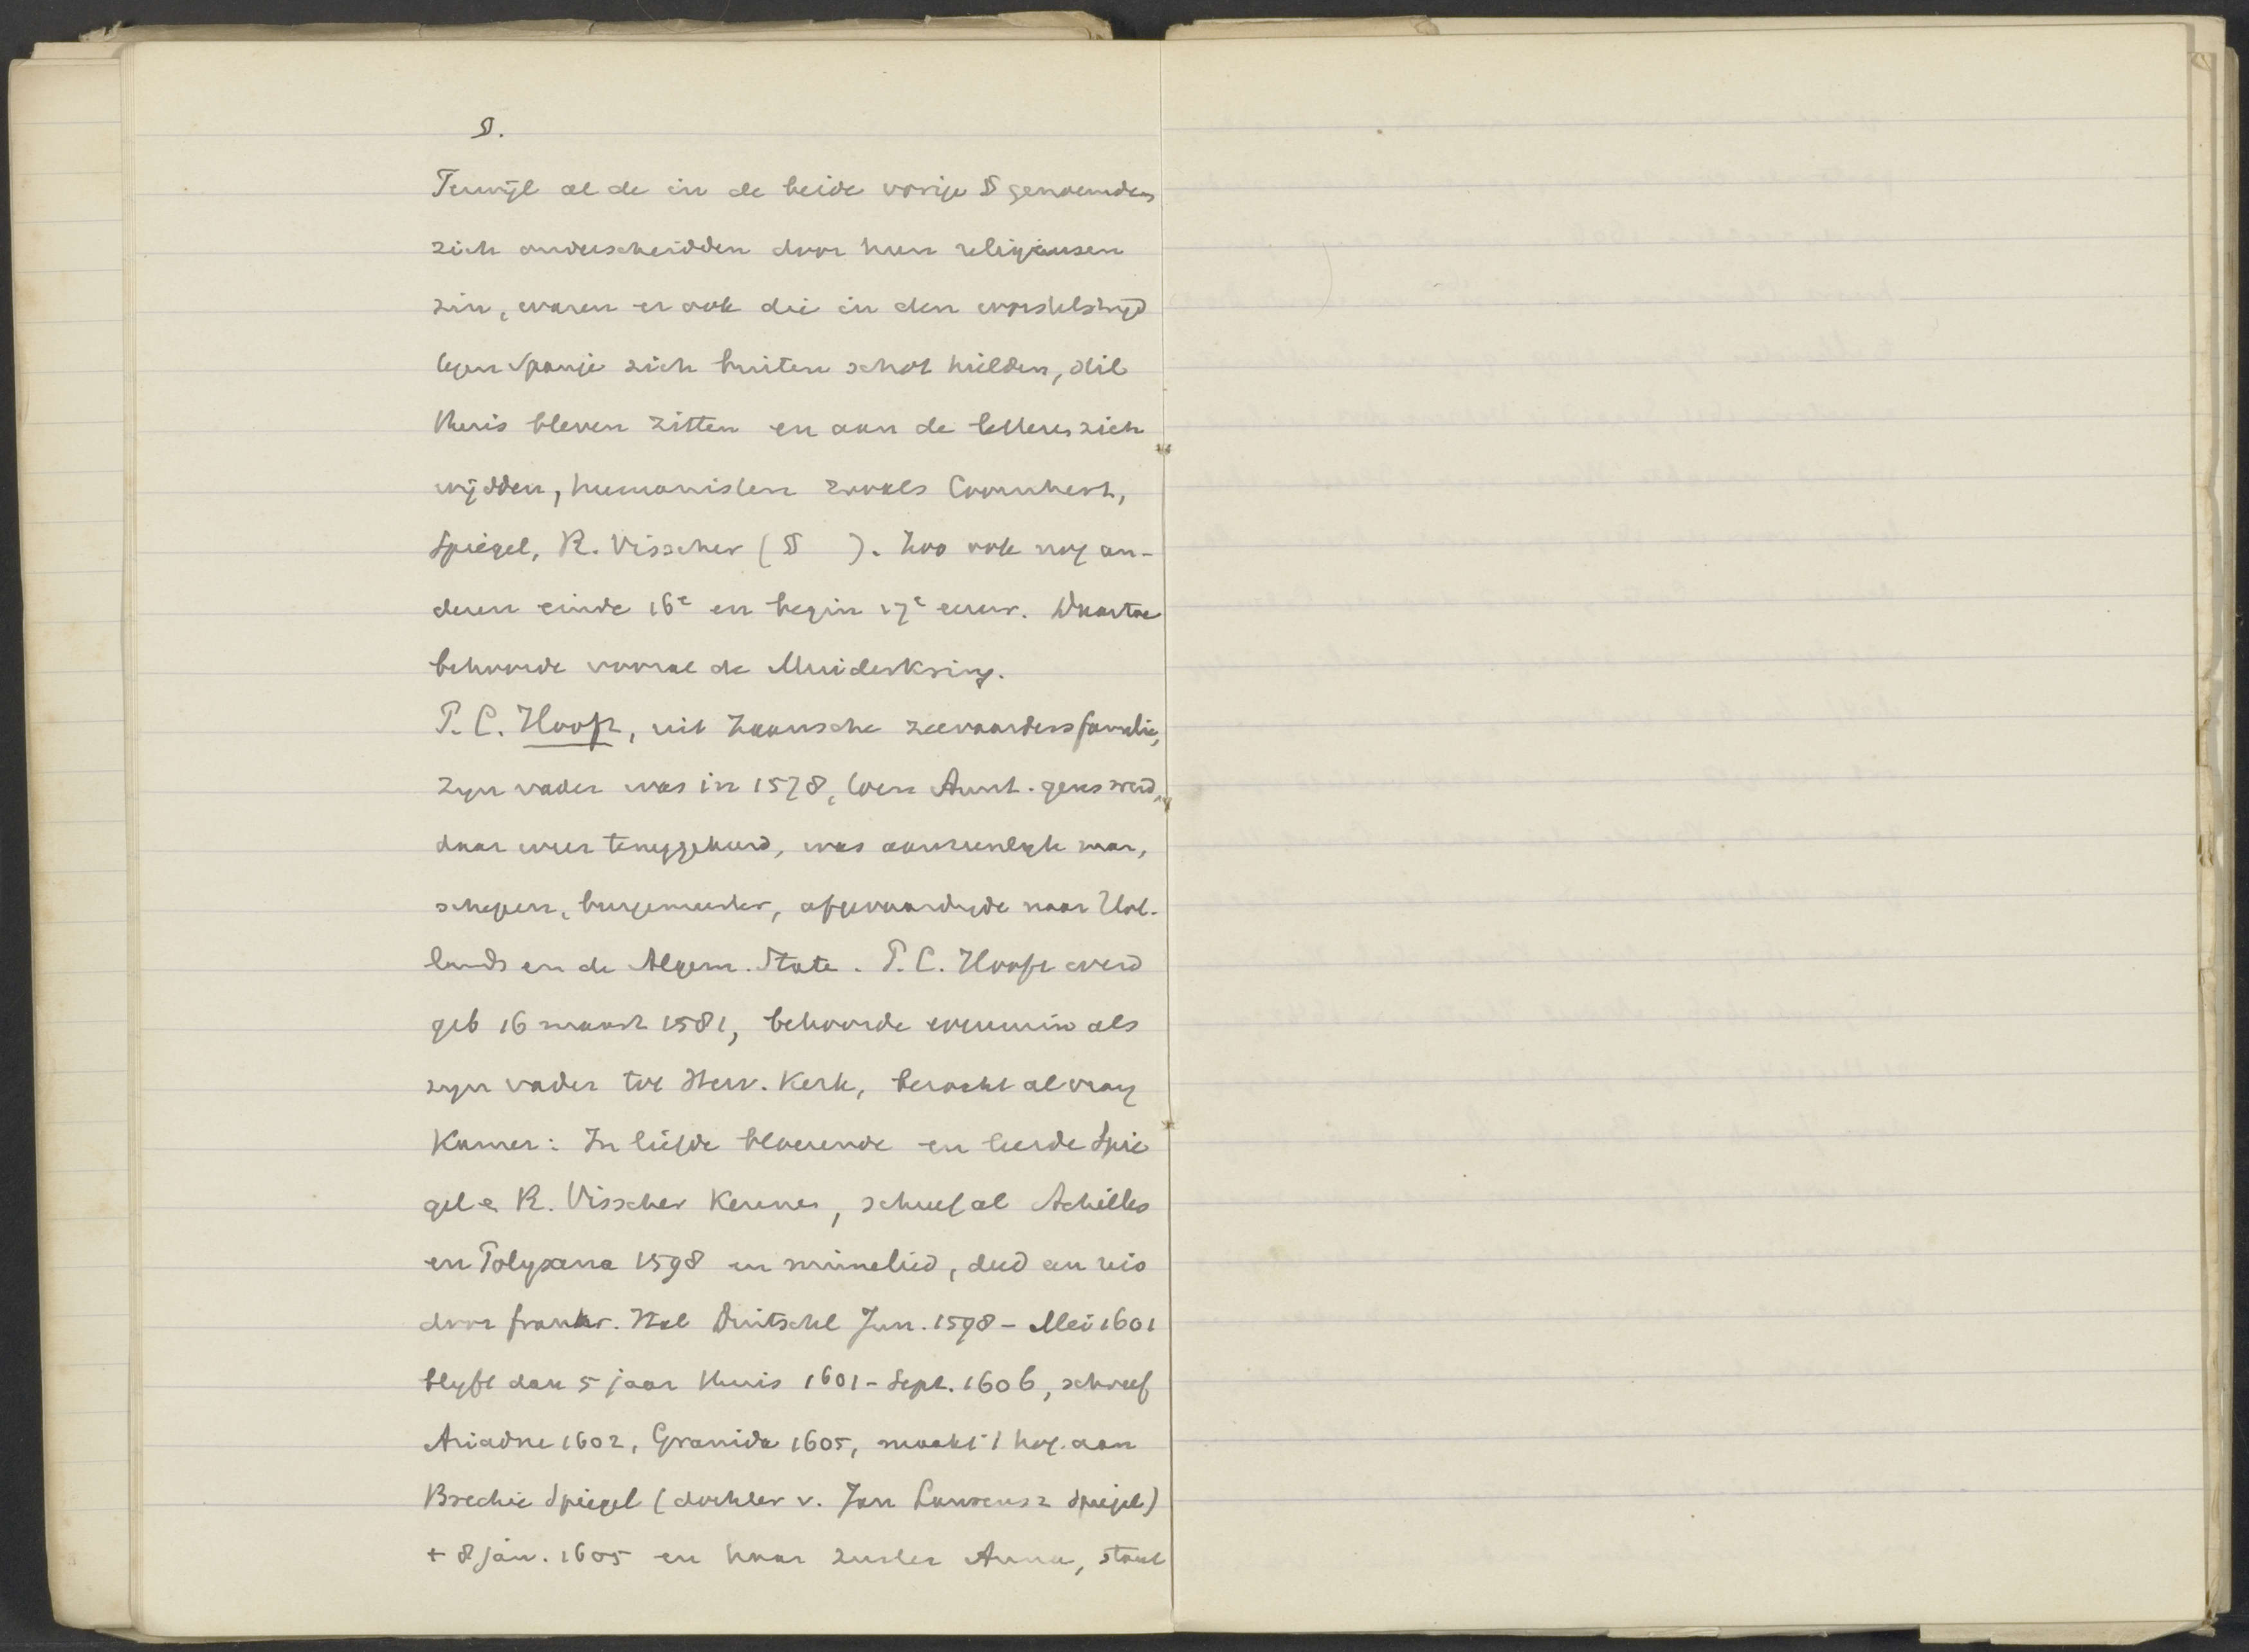 §.
Terwijl al de in de beide vorige §§ genoemden
zich onderscheidden door hun religieusen
zin, waren er ook die in den worstelstrijd
tegen Spanje zich buiten schot hielden, stil
thuis bleven zitten en aan de letteren zich
wijdden, humanisten zooals Coornhert,
Spiegel, R. Visscher (§ ). Zoo ook nog an-
deren einde 16e en begin 17e eeuw. Daartoe
behoorde vooral de Muiderkring.
P. C. Hooft, uit Zaansche zeevaardersfamilie,
zijn vader was in 1578, toen Amst. geus werd,
daar weer teruggekeerd, was aanzienlijk man,
schepen, burgemeester, afgevaardigde naar Hol-
lands en de Algem. State. P. C. Hooft werd
geb 16 maart 1581, behoorde evenmin als
zijn vader tot Herv. Kerk, bezocht al vroeg
Kamer: In liefde bloeiende en leerde Spie
gel e R. Visscher kennen, schreef al Achilles
en Polyxena 1598 en minnelied, deed een reis
door frankr. Ital Duitschl Jun. 1598 - Mei 1601
blijft dan 5 jaar thuis 1601 - Sept. 1606, schreef
Ariadne 1602, Granida 1605, maakt 't hof aan
Brechie Spiegel (dochter v. Jan Laurensz Spiegel)
+ 8 jan. 1605 en haar zuster Anna, staat